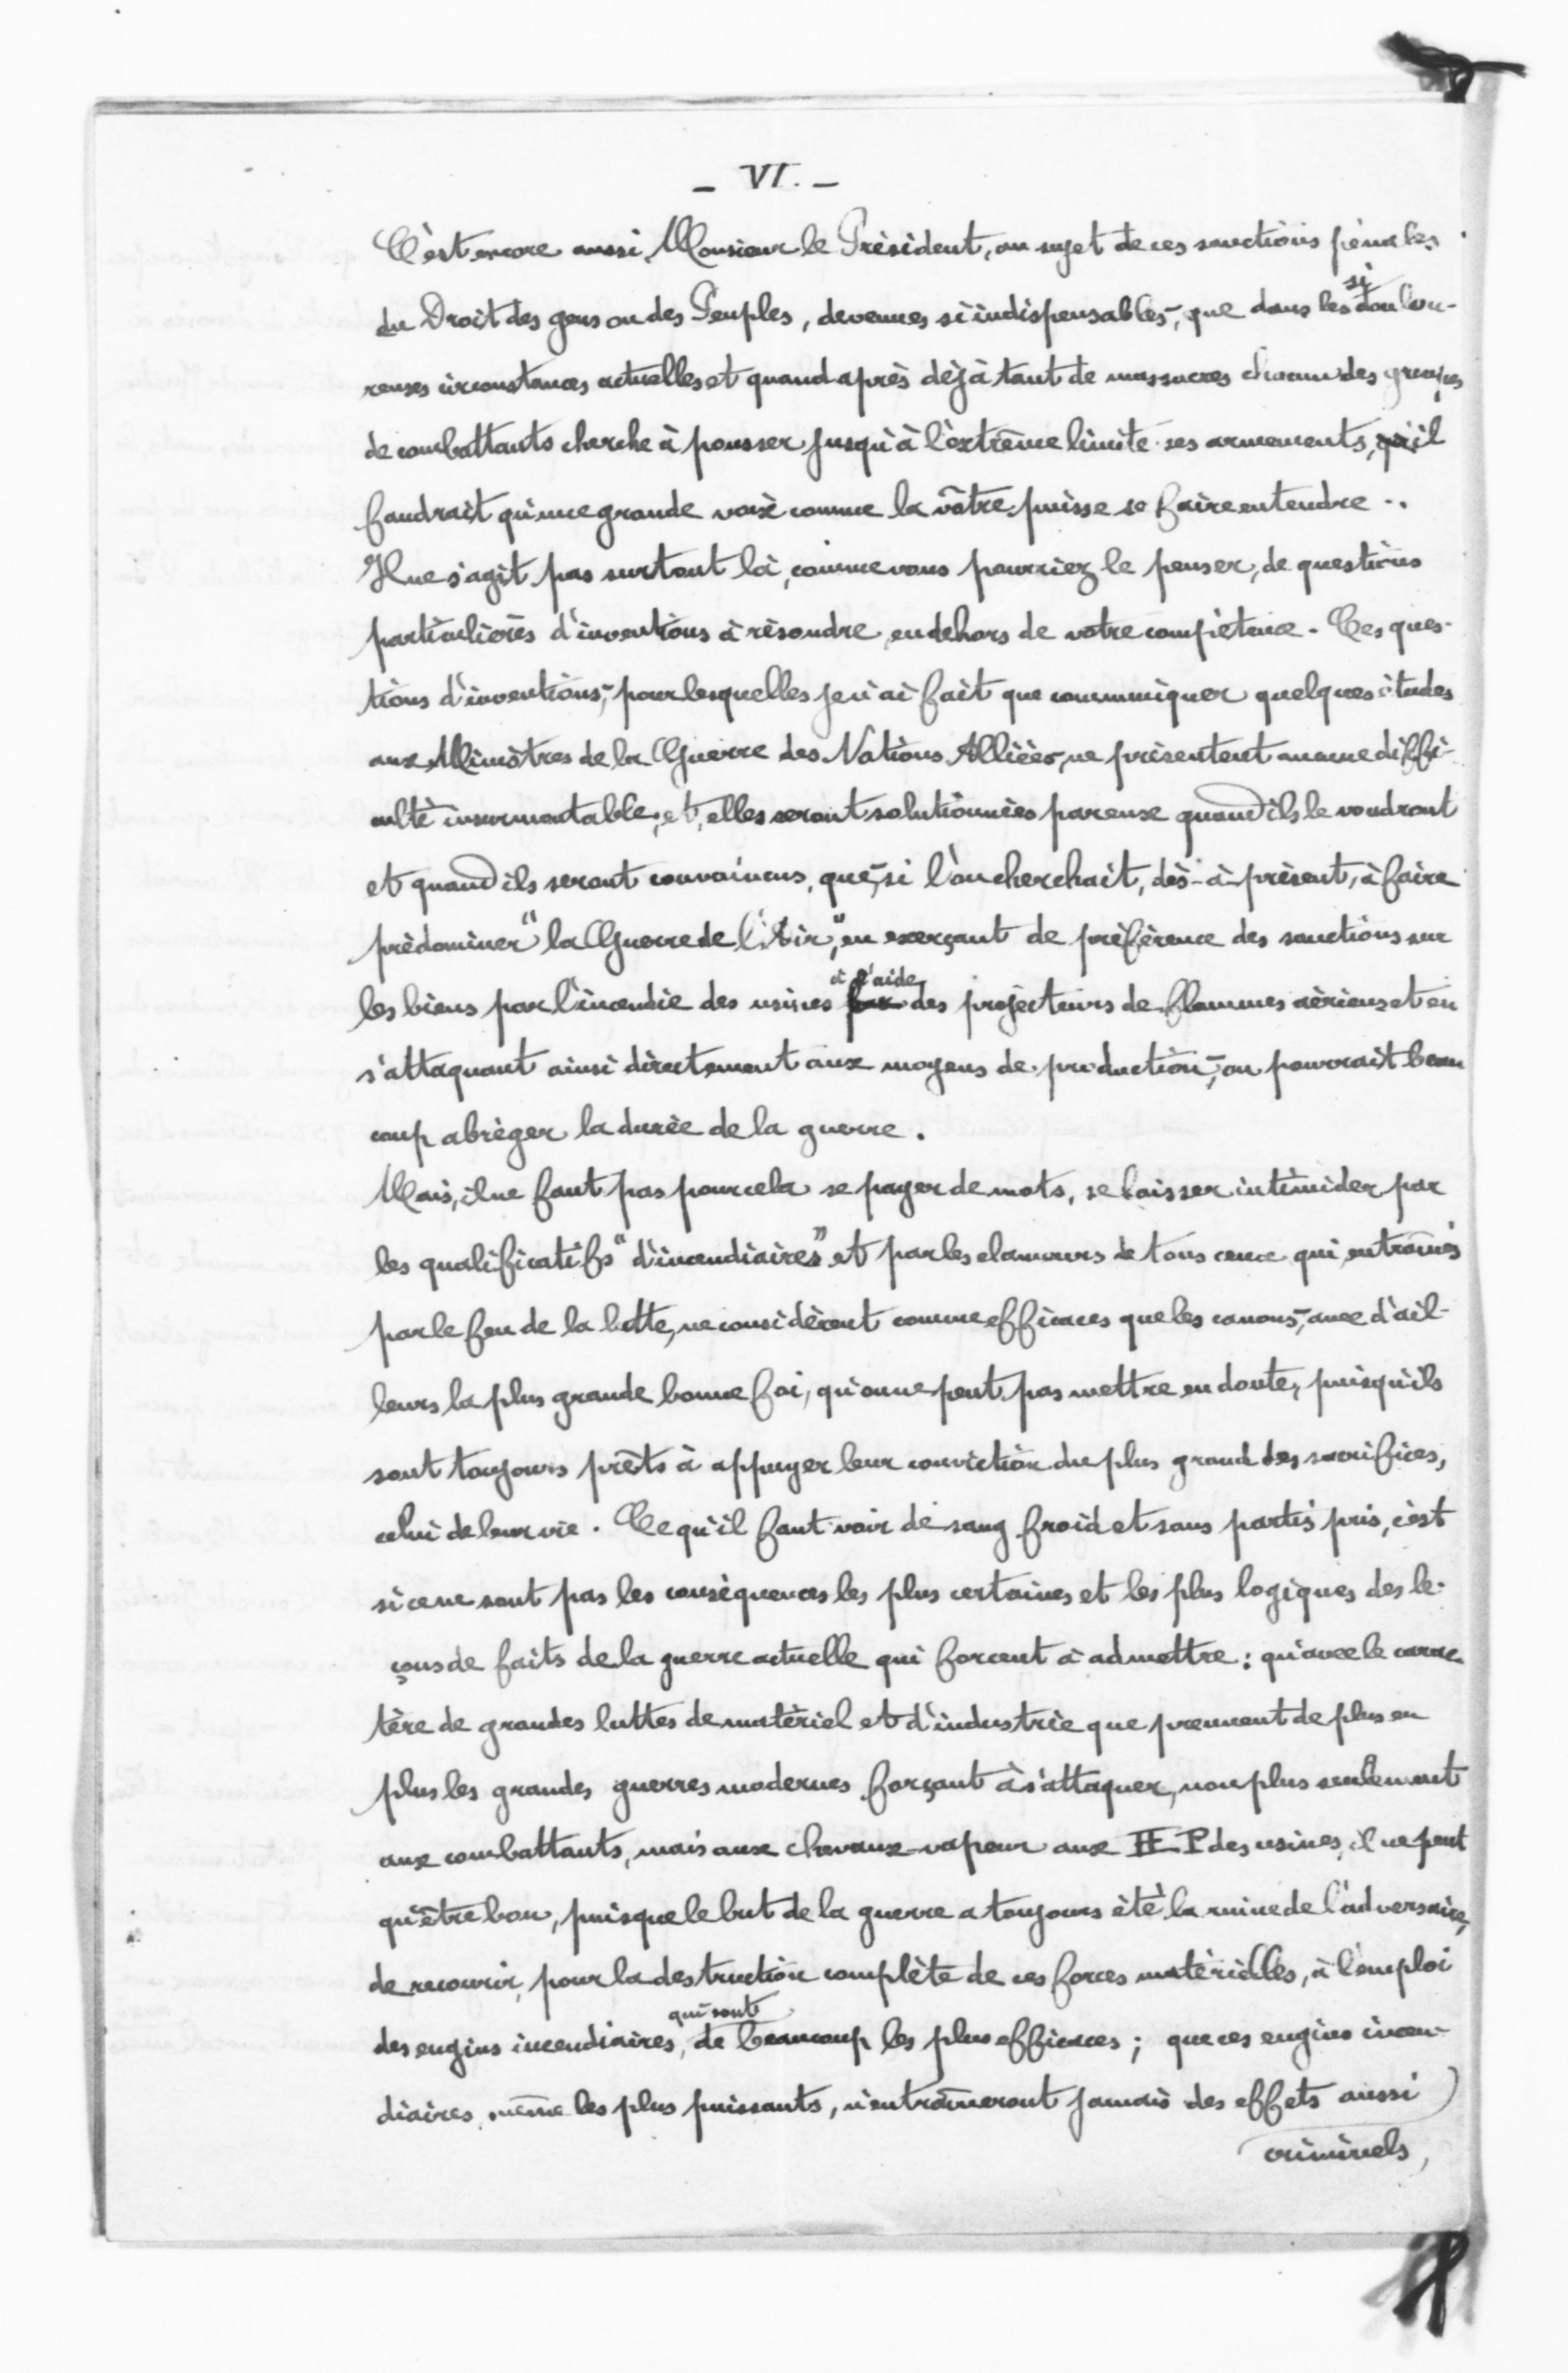 _ VI. _
C'est encore aussi, Monsieur le Président, au sujet de ces sanctions pénales
du Droit des gens ou des Peuples, devenues si indispensables, que dans les si doulou-
reuses circonstances actuelles et quand après déjà tant de massacres chacun des groupes
de combattants cherche à pousser jusqu'à l'extrême limite ses armements, qu'il
faudrait qu'une grande voix comme la vôtre puisse se faire entendre ..
Il ne s'agit pas surtout là, comme vous pourriez le penser, de questions
particulières d'inventions à résoudre, en dehors de votre compétence. Ces ques-
tions d'inventions, pour lesquelles je n'ai fait que communiquer quelques études
aux Ministres de la Guerre des Nations Alliées, ne présentent aucune diffi-
culté insurmontable, et, elles seront solutionnées par eux quand ils le voudront
et quand ils seront convaincus, que, si l'on cherchait, dès-à-présent, à faire
prédominer "la Guerre de l'Air", en exerçant de préférence des sanctions sur
les biens par l'incendie des usines à l'aide des projecteurs de flammes aériens et en
s'attaquant ainsi directement aux moyens de production, on pourrait beau
coup abréger la durée de la guerre.
Mais, il ne faut pas pour cela se payer de mots, se laisser intimider par
les qualificatifs "d'incendiaires" et par les clameurs de tous ceux qui, entraînés
par le feu de la lutte, ne considèrent comme efficaces que les canons, avec d'ail-
leurs la plus grande bonne foi, qu'on ne peut pas mettre en doute, puisqu'ils
sont toujours prêts à appuyer leur conviction du plus grand des sacrifices,
celui de leur vie. Ce qu'il faut voir de sang froid et sans partis pris, c'est
si ce ne sont pas les conséquences les plus certaines et les plus logiques des le-
çons de faits de la guerre actuelle qui forcent à admettre : qu'avec le carac
tère de grandes luttes de matériel et d'industrie que prennent de plus en
plus les grandes guerres modernes forçant à s'attaquer, non plus seulement
aux combattants, mais aux chevaux-vapeur aux HP des usines, il ne peut
qu'être bon, puisque le but de la guerre a toujours été la ruine de l'adversaire,
de recourir, pour la destruction complète de ces forces matérielles, à l'emploi
des engins incendiaires, qui sont de beaucoup les plus efficaces ; que ces engins incen-
diaires, même les plus puissants, n'entraîneront jamais des effets aussi
criminels,